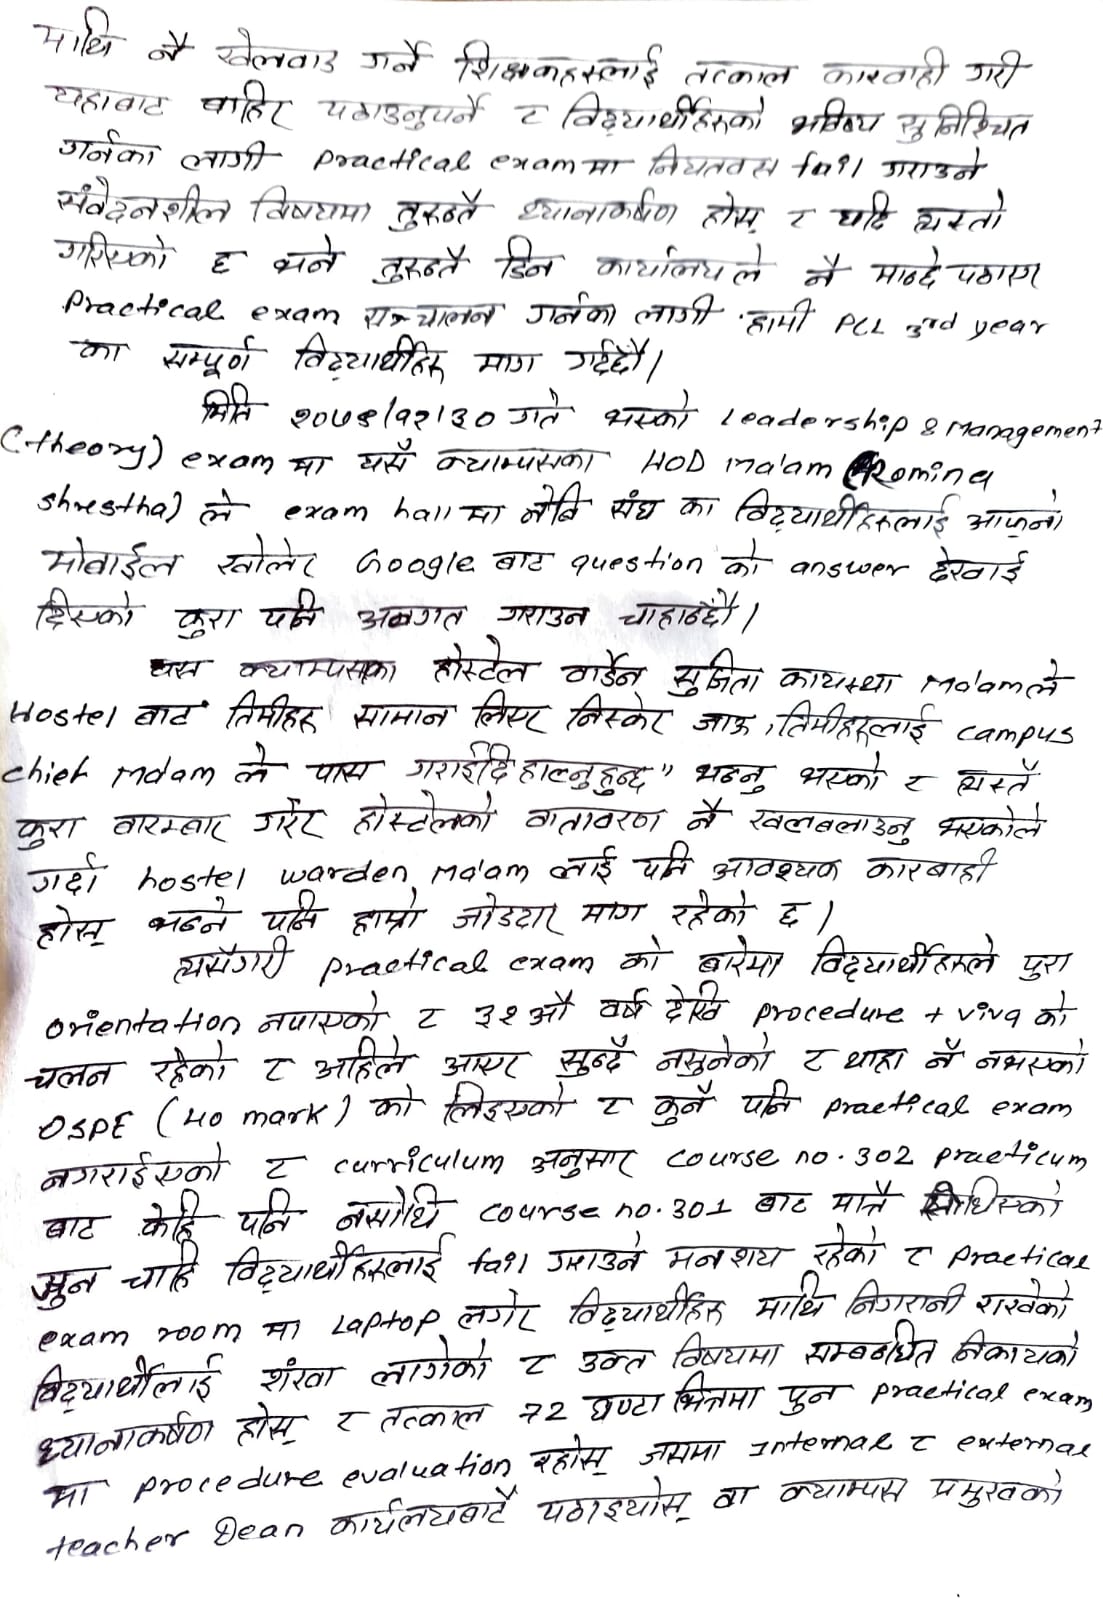 माथि नै खेलवाड गर्ने शिक्षकहरुलाई तत्काल कारवाही गरी
यहाबाट बाहिर पठाउनुपर्ने र विद्यार्थीहरुको भविष्य सुनिश्चित
गर्नका लागी practical exam मा नियतवस fail गराउने
संवेदनशील विषयमा तुरुन्तै ध्यानाकर्षण होस् र यदि त्यस्तो
गरिएको छ भने तुरुन्तै डिन कार्यालयले नै मान्छे पठाएर
Practical exam सञ्चालन गर्नका लागी हामी PCL 3rd year
का सम्पूर्ण विद्यार्थीहरु माग गर्दछौ।
मिति २०७९/१२/३० गते भएको Leadership & Management
(theory) exam मा यसै क्याम्पसका HOD ma'am (Romina
shrestha) ले exam hall मा नेवि संघ का विद्यार्थीहरुलाई आफ्नो
मोबाईल खोलेर Google बाट question को answer देखाई
दिएको कुरा पनि अवगत गराउन चाहान्छौ।
यस क्याम्पसका होस्टेल वार्डेन सुजिता कायस्था Ma'am ले
Hostel बाट तिमीहरु सामान लिएर निस्केर जाऊ, तिमीहरुलाई campus
chief Ma'am ले पास गराईदिहाल्नुहुन्छ" भन्नु भएको र त्यस्तै
कुरा बारम्बार गरेर होस्टेलको वातावरण नै खलबलाउनु भएकोले
गर्दा hostel warden Ma'am लाई पनि आवश्यक कारबाही
होस् भन्ने पनि हाम्रो जोडदार माग रहेको छ।
त्यसैगरी practical exam को बारेमा विद्यार्थीहरुले पुरा
orientation नपाएको र ३१औ वर्ष देखि procedure + viva को
चलन रहेको र अहिले आएर सुन्दै नसुनेको र थाहा नै नभएको
OSPE (40 mark) को लिइएको र कुनै पनि practical exam
नगराईएको र curriculum अनुसार course no. 302 practicum
बाट केहि पनि नसोधि course no. 301 बाट मात्रै सोधिएको
जुन चाहि विद्यार्थीहरुलाई fail गराउने मनशय रहेको र practical
exam room मा Laptop लगेर विद्यार्थीहरु माथि निगरानी राखेको
विद्यार्थीलाई शंखा लागेको र उक्त विषयमा सम्बन्धित निकायको
ध्यानाकर्षण होस् र तत्काल 72 घण्टा भित्रमा पुन practical exam
मा procedure evaluation रहोस् जसमा Internal र external
teacher Dean कार्यलयबाटै पठाइयोस् वा क्याम्पस प्रमुखको